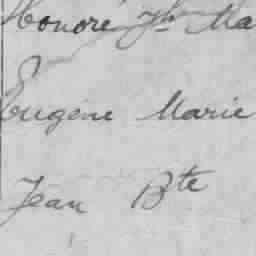 Honoré Jh Ma
Eugène Marie
Jean Bte